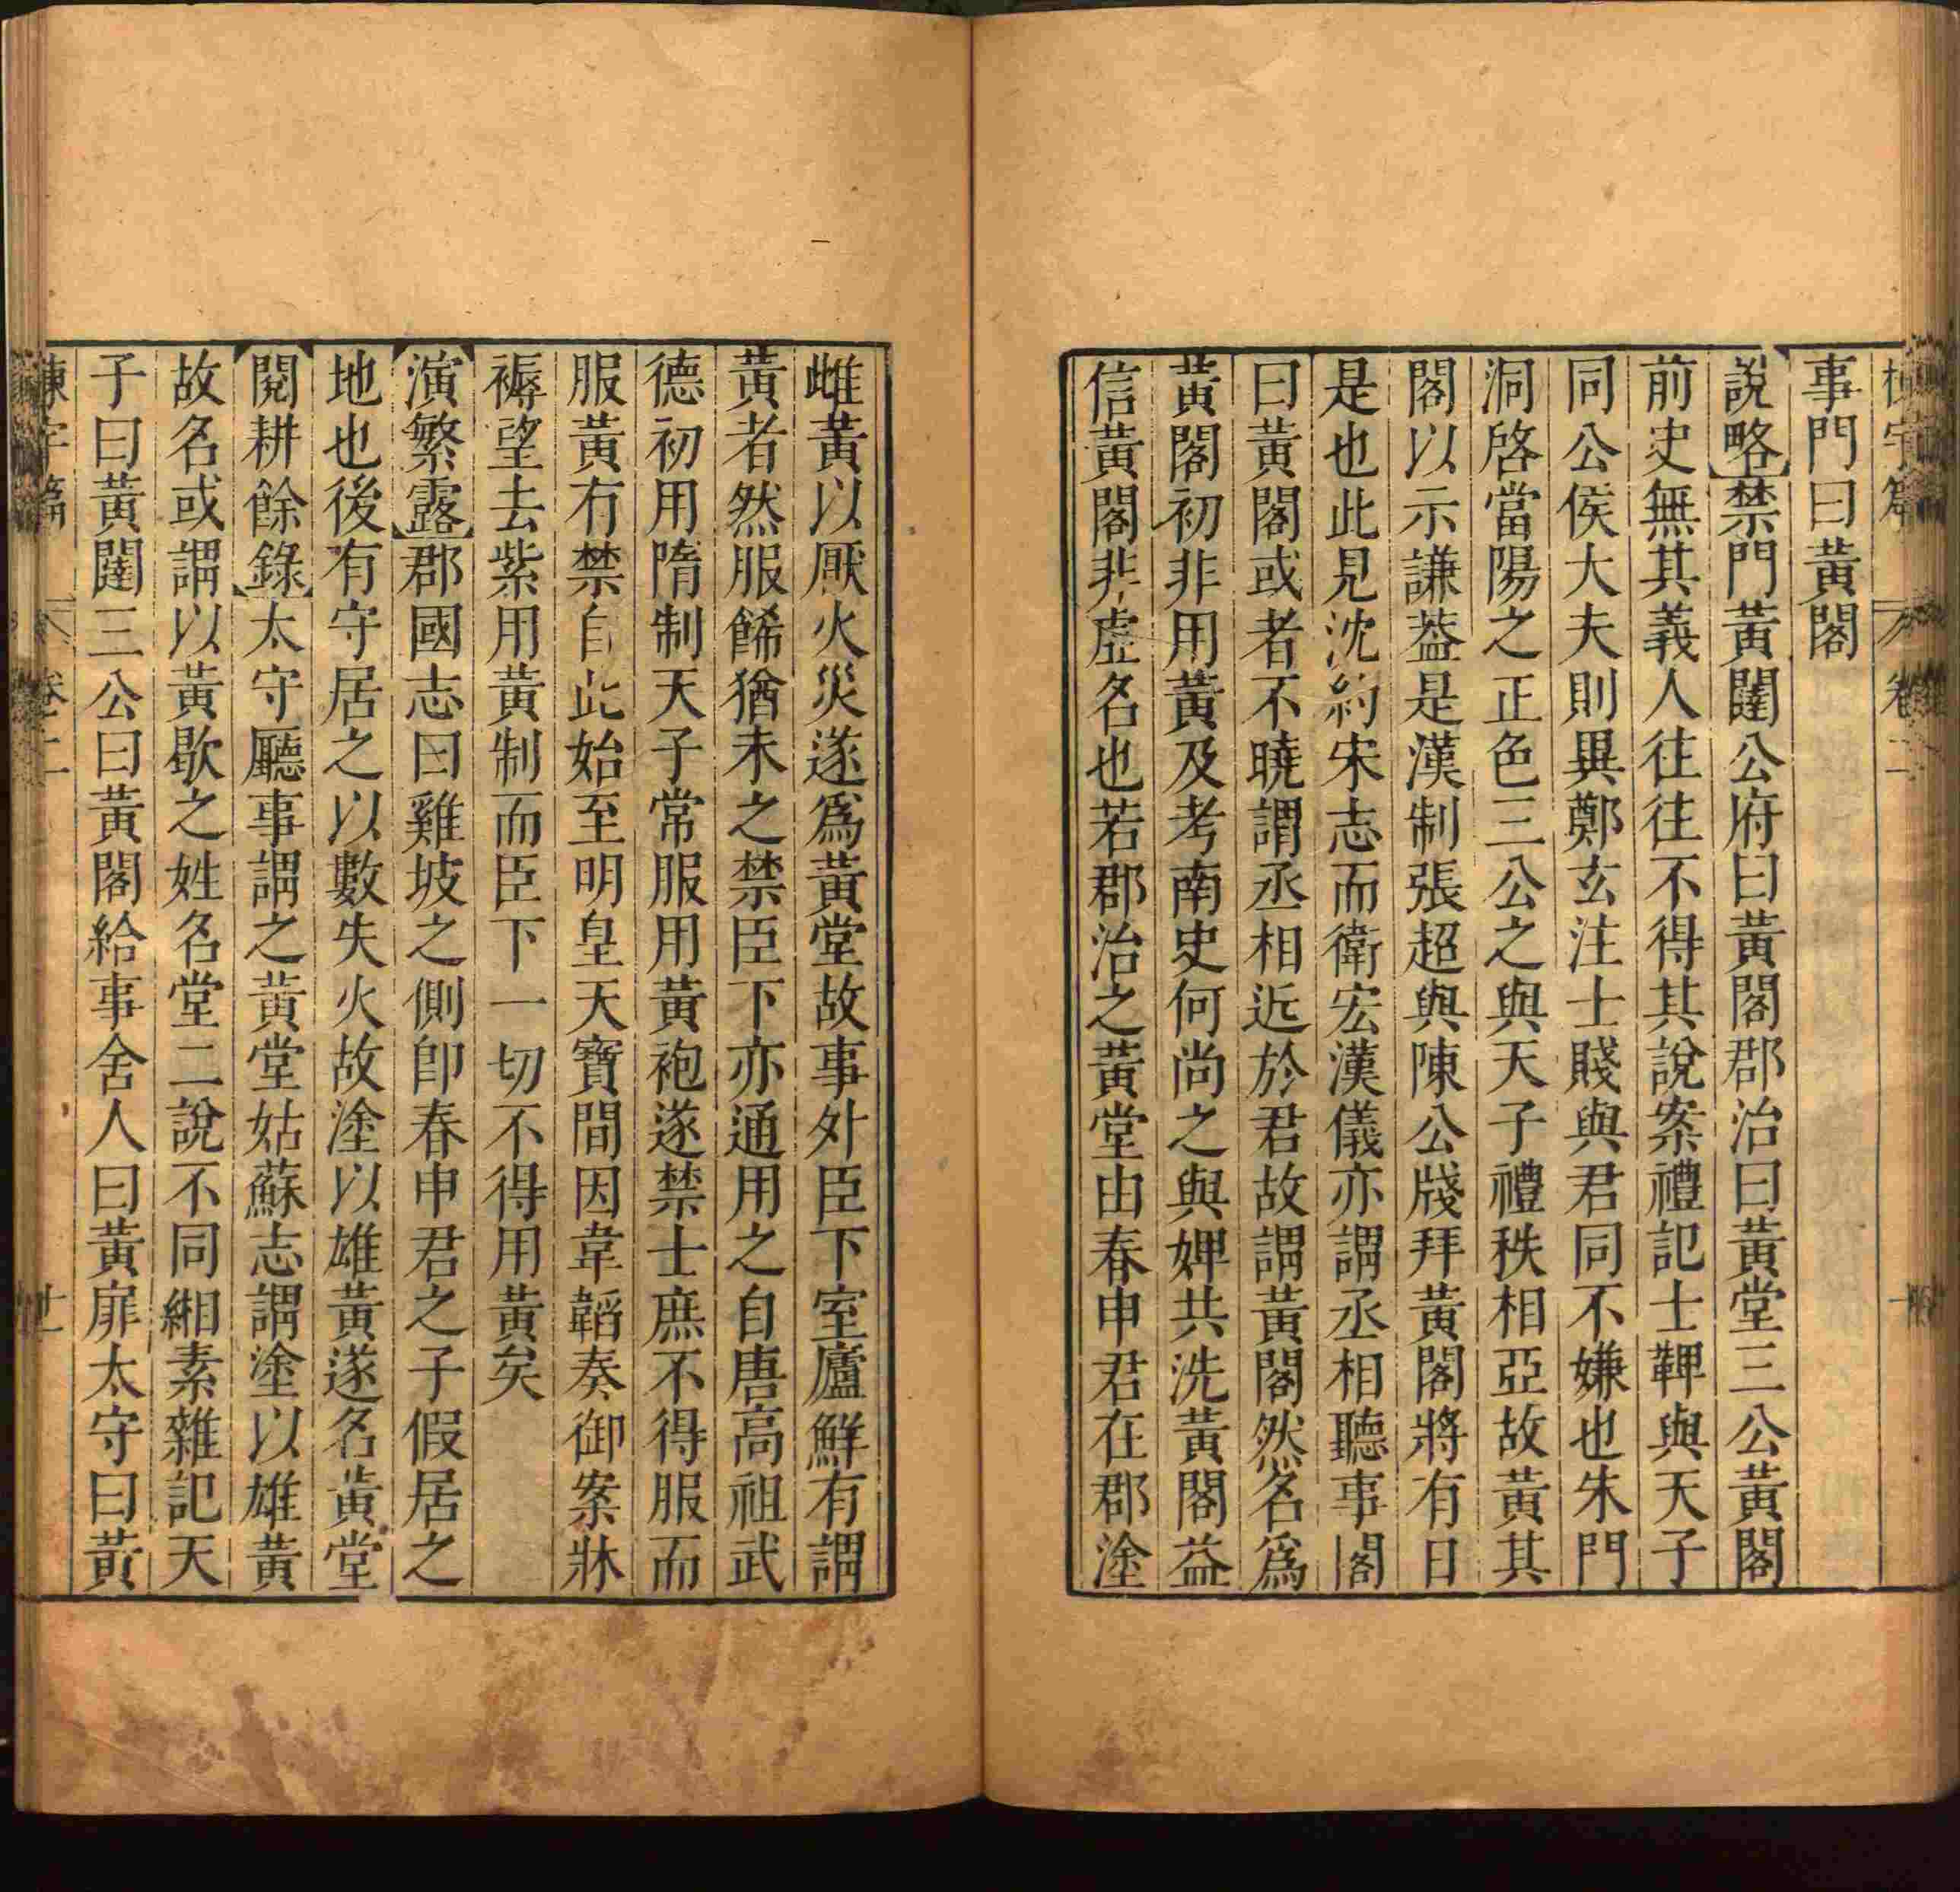 事門曰黃閣
說略禁門黃闥公府曰黃閣郡治曰黃堂三公黃閣
前史無其義人往往不得其說案禮記士鞸與天子
同公侯大夫則異鄭玄注士賤與君同不嫌也朱門
洞啓當陽之正色三公之與天子禮秩相亞故黃其
閣以示謙葢是漢制張超與陳公牋拜黃閣將有日
是也此見沈約宋志而衛宏漢儀亦謂丞相聽事閣
曰黃閣或者不曉謂丞相近於君故謂黃閣然名爲
黃閣初非用黃及考南史何尚之與婢共洗黃閣益
信黃閣非虛名也若郡治之黃堂由春申君在郡塗
雌黃以厭火災遂爲黃堂故事外臣下室廬鮮有謂
黃者然服餙猶未之禁臣下亦通用之自唐高祖武
德初用隋制天子常服用黃袍遂禁士庶不得服而
服黃有禁自此始至明皇天寶間因韋韜奏御案牀
褥望去紫用黃制而臣下一切不得用黃矣
演繁露郡國志曰雞坡之側卽春申君之子假居之
地也後有守居之以數失火故塗以雄黃遂名黃堂
閱耕餘錄太守廳事謂之黃堂姑蘇志謂塗以雄黃
故名或謂以黃歇之姓名堂二說不同緗素雜記天
子曰黃闥三公曰黃閣給事舍人曰黃扉太守曰黃